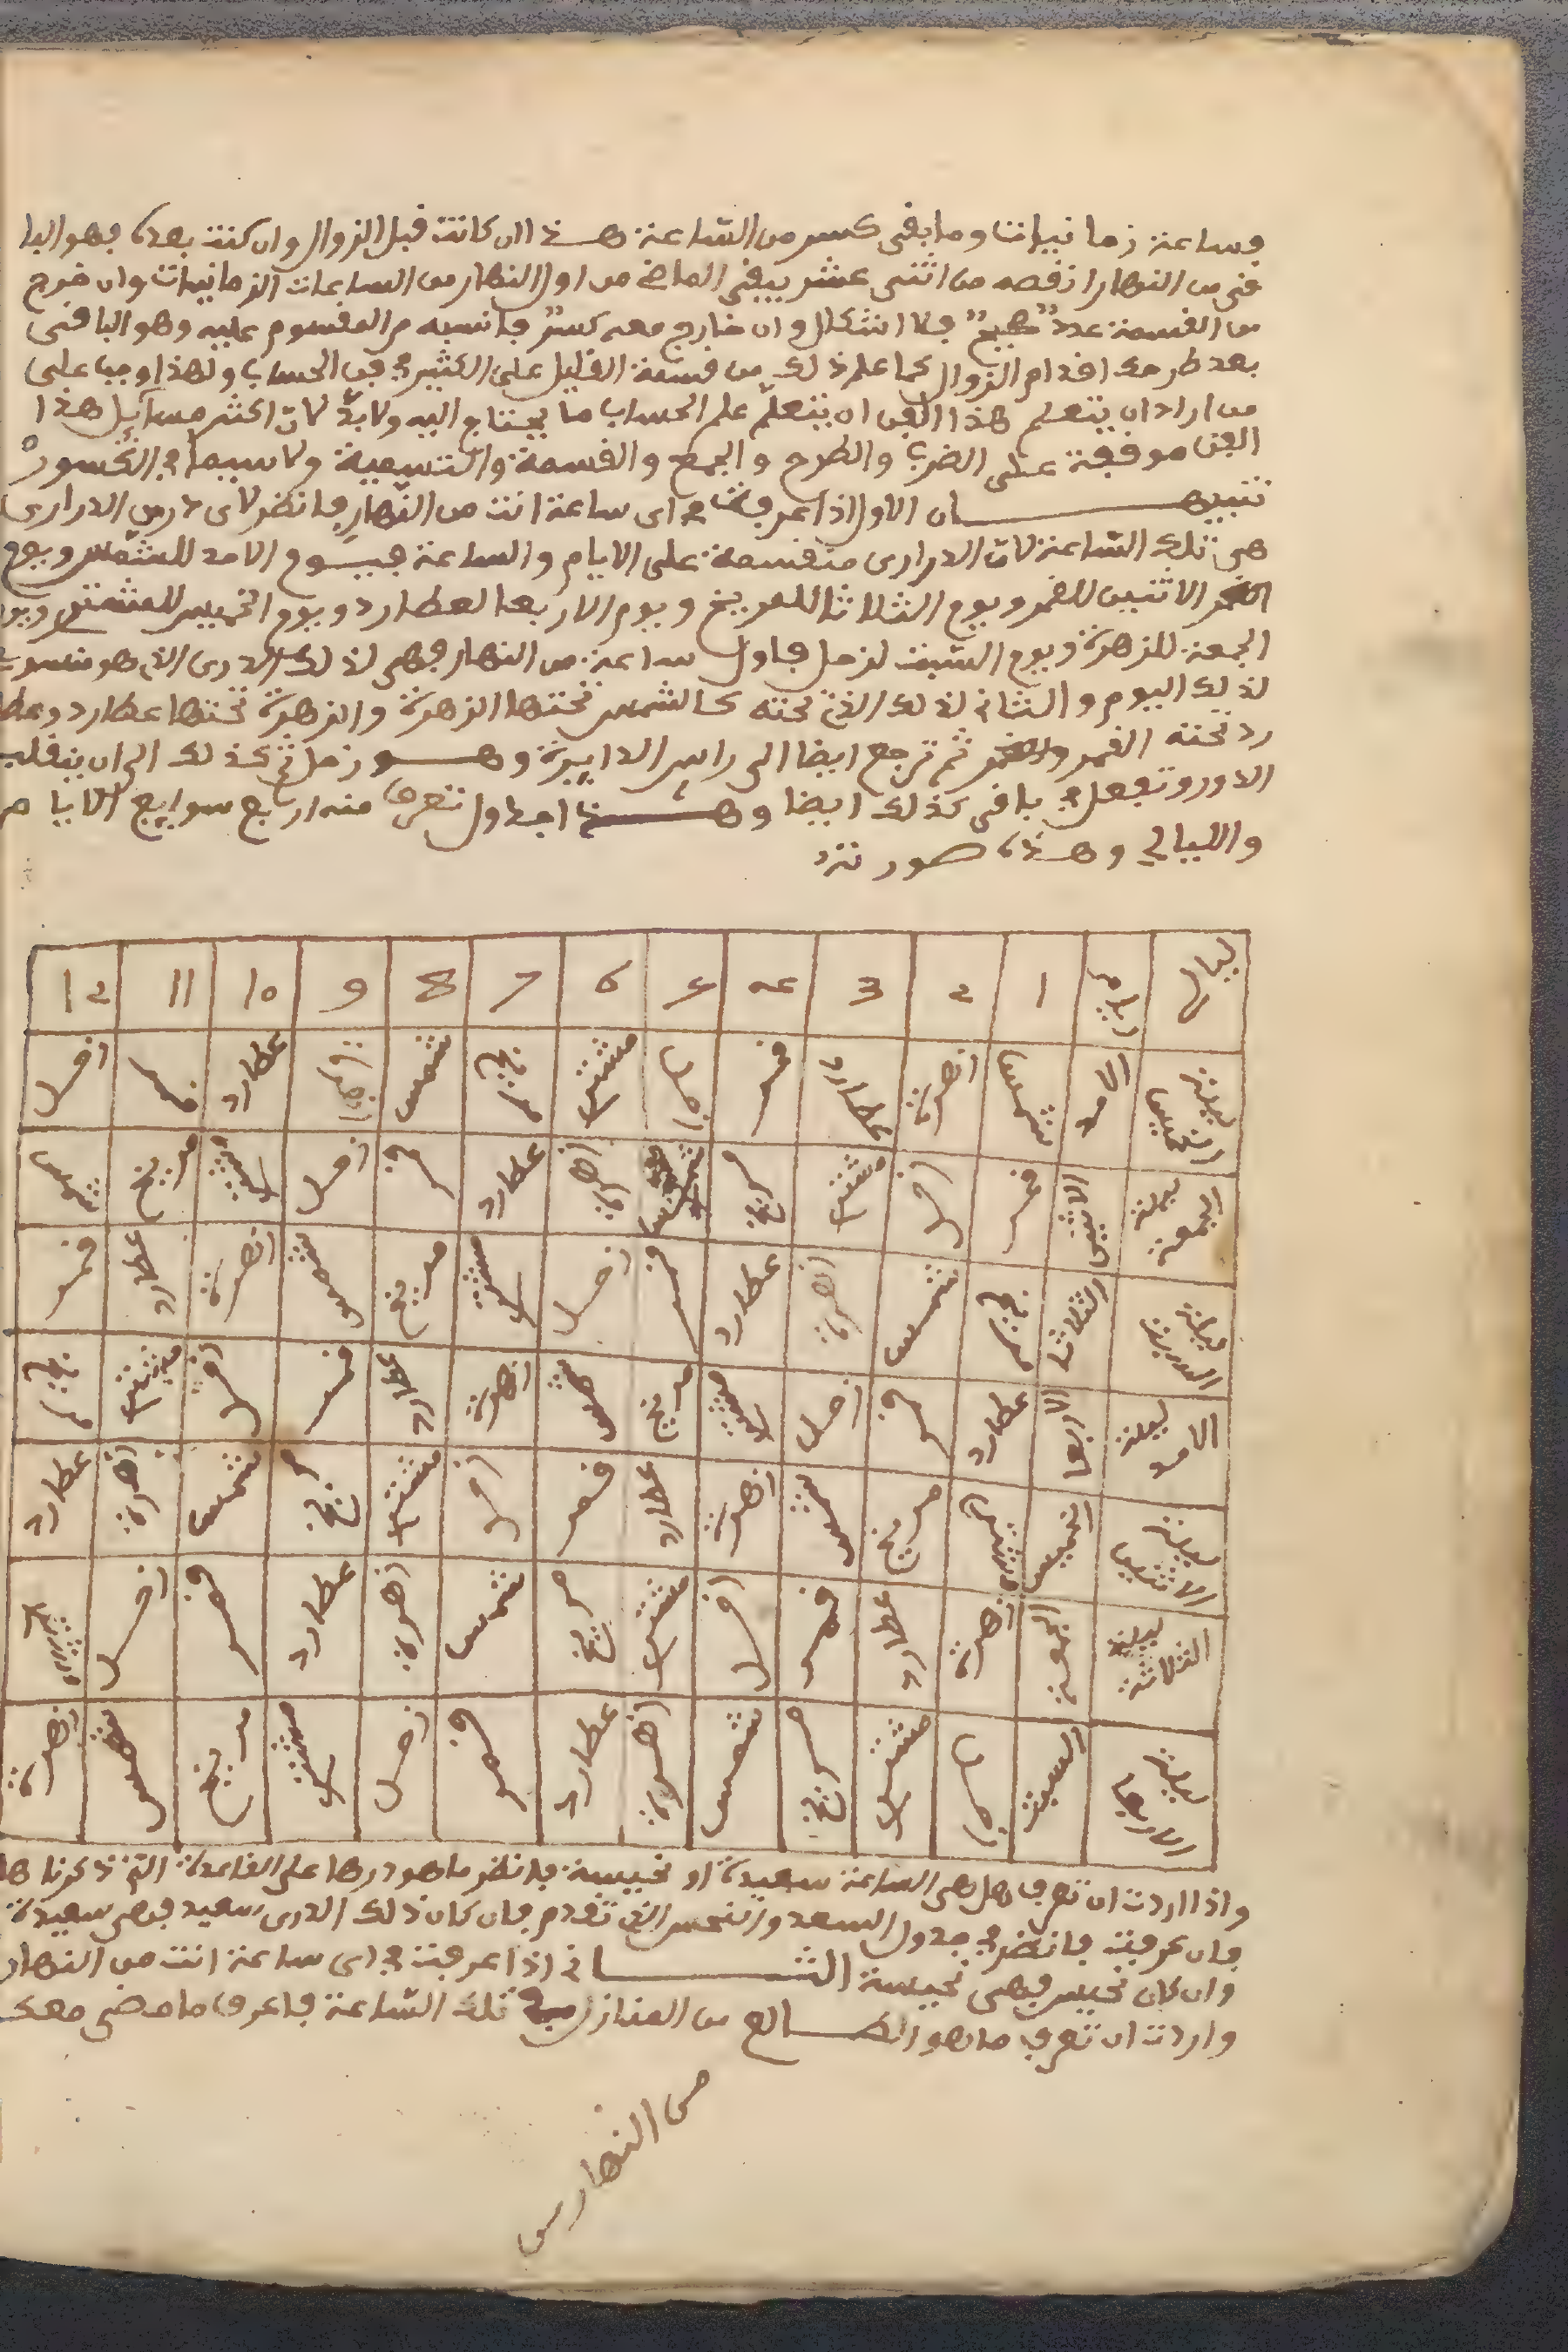 فساعة زمانيات وما بقى كسر من الساعة هذا ان كانت قبل الزوال وان كنت بعده فهو البا
قى من النهار انقصه من اثنى عشر يبقى الماضى من اول النهار من الساعات الزمانيات وان خرج
من القسمة عدد صحيح فلا اشكال وان خارج معه كسر فانسبه م المقسوم عليه وهو الباقى
بعد طرحك اقدام الزوال كما علم ذلك من قسمة القليل على الكثير فى فن الحساب ولهذا وجب على
من اراد ان يتعلم هذا الفن ان يتعلم علم الحساب ما يحتاج اليه ولا بد لان اكثر مسايل هذا
الفن موقفة على الضرب والطرح والجمع والقسمة والتسمية ولا سيما فى الكسور
تنبيهان الاول اذا عرفت فى اى ساعة انت من النهار فانظر لاى درى من الدرارى
هى تلك الساعة لان الدرارى منقسمة على الايام والساعة فيوم الاحد للشمس ويوم
الاثنين للقمر ويوم الثلاثا للمريخ ويوم الاربعا لعطارد ويوم الخميس للمشترى ويو
الجمعة للزهرة ويوم السبت لزحل فاول ساعة من النهار فهى لذلك الدرى الذى هو منسوب
لذلك اليوم والثانى لذلك الذى تحته كالشمس تحتها الزهرة والزهرة تحتها عطارد وعطا
رد تحته القمر والقمر ثم ترجع ايضا الى راس الدايرة وهو زحل ثم كذلك الى ان ينقلب
الدور وتفعل فى باقى كذلك ايضا وهذا جدول تعرف منه اربع سوايع الايام
والليالى وهذه صورته
ليال ايام 1 2 3 عـ 5 6 7 8 9 10 11 12
ليلة الخميس الاحد شمس ازهرة عطارد قمر ازحل مشترى مريخ شمس ازهرة عطارد قمر ازحل
ليلة الجمعة الاثنين قمر ازحل مشترى مريخ شمس ازهرة عطارد قمر ازحل مشترى مريخ شمس
ليلة السبت الثلاثا مريخ شمس ازهرة عطارد قمر ازحل مشترى مريخ شمس ازهرة عطارد قمر
ليلة الاحد الاربعا عطارد قمر ازحل مشترى مريخ شمس ازهرة عطارد قمر ازحل مشترى مريخ
ليلة الاثنين الخميس مشترى مريخ شمس ازهرة عطارد قمر ازحل مشترى مريخ شمس ازهرة عطارد
ليلة الثلاثة الجمعة ازهرة عطارد قمر ازحل مشترى مريخ شمس ازهرة عطارد قمر ازحل مشترى
ليلة الاربعا السبت ازحل مشترى مريخ شمس ازهرة عطارد قمر ازحل مشترى مريخ شمس ازهرة
واذا اردت ان تعرف هل هى الساعة سعيدة او نحيسة فانظر ما هو دريها على القاعدة التى ذكرناها
فان عرفت فانظر فى جدول السعد والنحس الذى تقدم فان كان ذلك الدرى سعيد فهى سعيدة
وان كان نحيس فهى نحيسة الثانى اذا عرفت فى اى ساعة انت من النهار
واردت ان تعرف ما هو الطالع من المنازل فى تلك الساعة فاعرف ما مضى معك
من النهار من